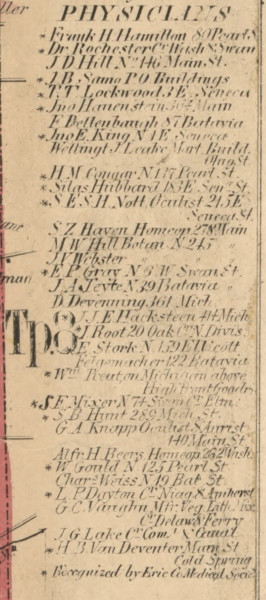 ller
PHYSICIANS
* Frank H Hamilton 80 Pearl S
* Dr Rochester Cr. Wash & Swan
J D Hill No 146 Main St.
* I. B. Samo P O Buildings
* T T Lockwood 3 E. Seneca
* Jno Hauenstein 364 Main
F Dellenbaugh 87 Batavia
* Jno E. King N 1 E Seneca
Wellingt J Leake Mart. Build.
Ohio St.
* H M Congar N 137 Pearl St
* Silas Hubbard 183 E. Sena St.
* S E S H Nott Oculist 245 E
Seneca St.
S Z Haven Homeop 278 Main
M W Hill Botan N 245 "
J V Webster "
* E P Gray N 6 W Swan St.
J A Jeyte N 39 Batavia "
D Devenning 361 Mich
J J E Packsteen 414 Mich
J Root 20 Oak Cr N Divis.
E Stork N 159 Ellicott
Feigemacher 122 Batavia
* Wm Treaton Michigan above
High Front Goodr.
* S F Mixer N 74 Swan Cr Elm
* S B Hunt 289 Mich St.
G A Knapp Oculist & Aurist
140 Main St
Alfr H Beers Homeop 262 Wash
* W Gould N 125 Pearl St
Chars Weiss N 19 Bat St
* L P Dayton Cr Niag & Amherst
G C Vaughn Mfr Veg Lith Mix
Cr Delaw & Ferry
J G Lake Cr Com. & Canal
* H B Van Deventer Main St
Cold Spring
* Recognized by Erie Co Medical Socie
Tp.8